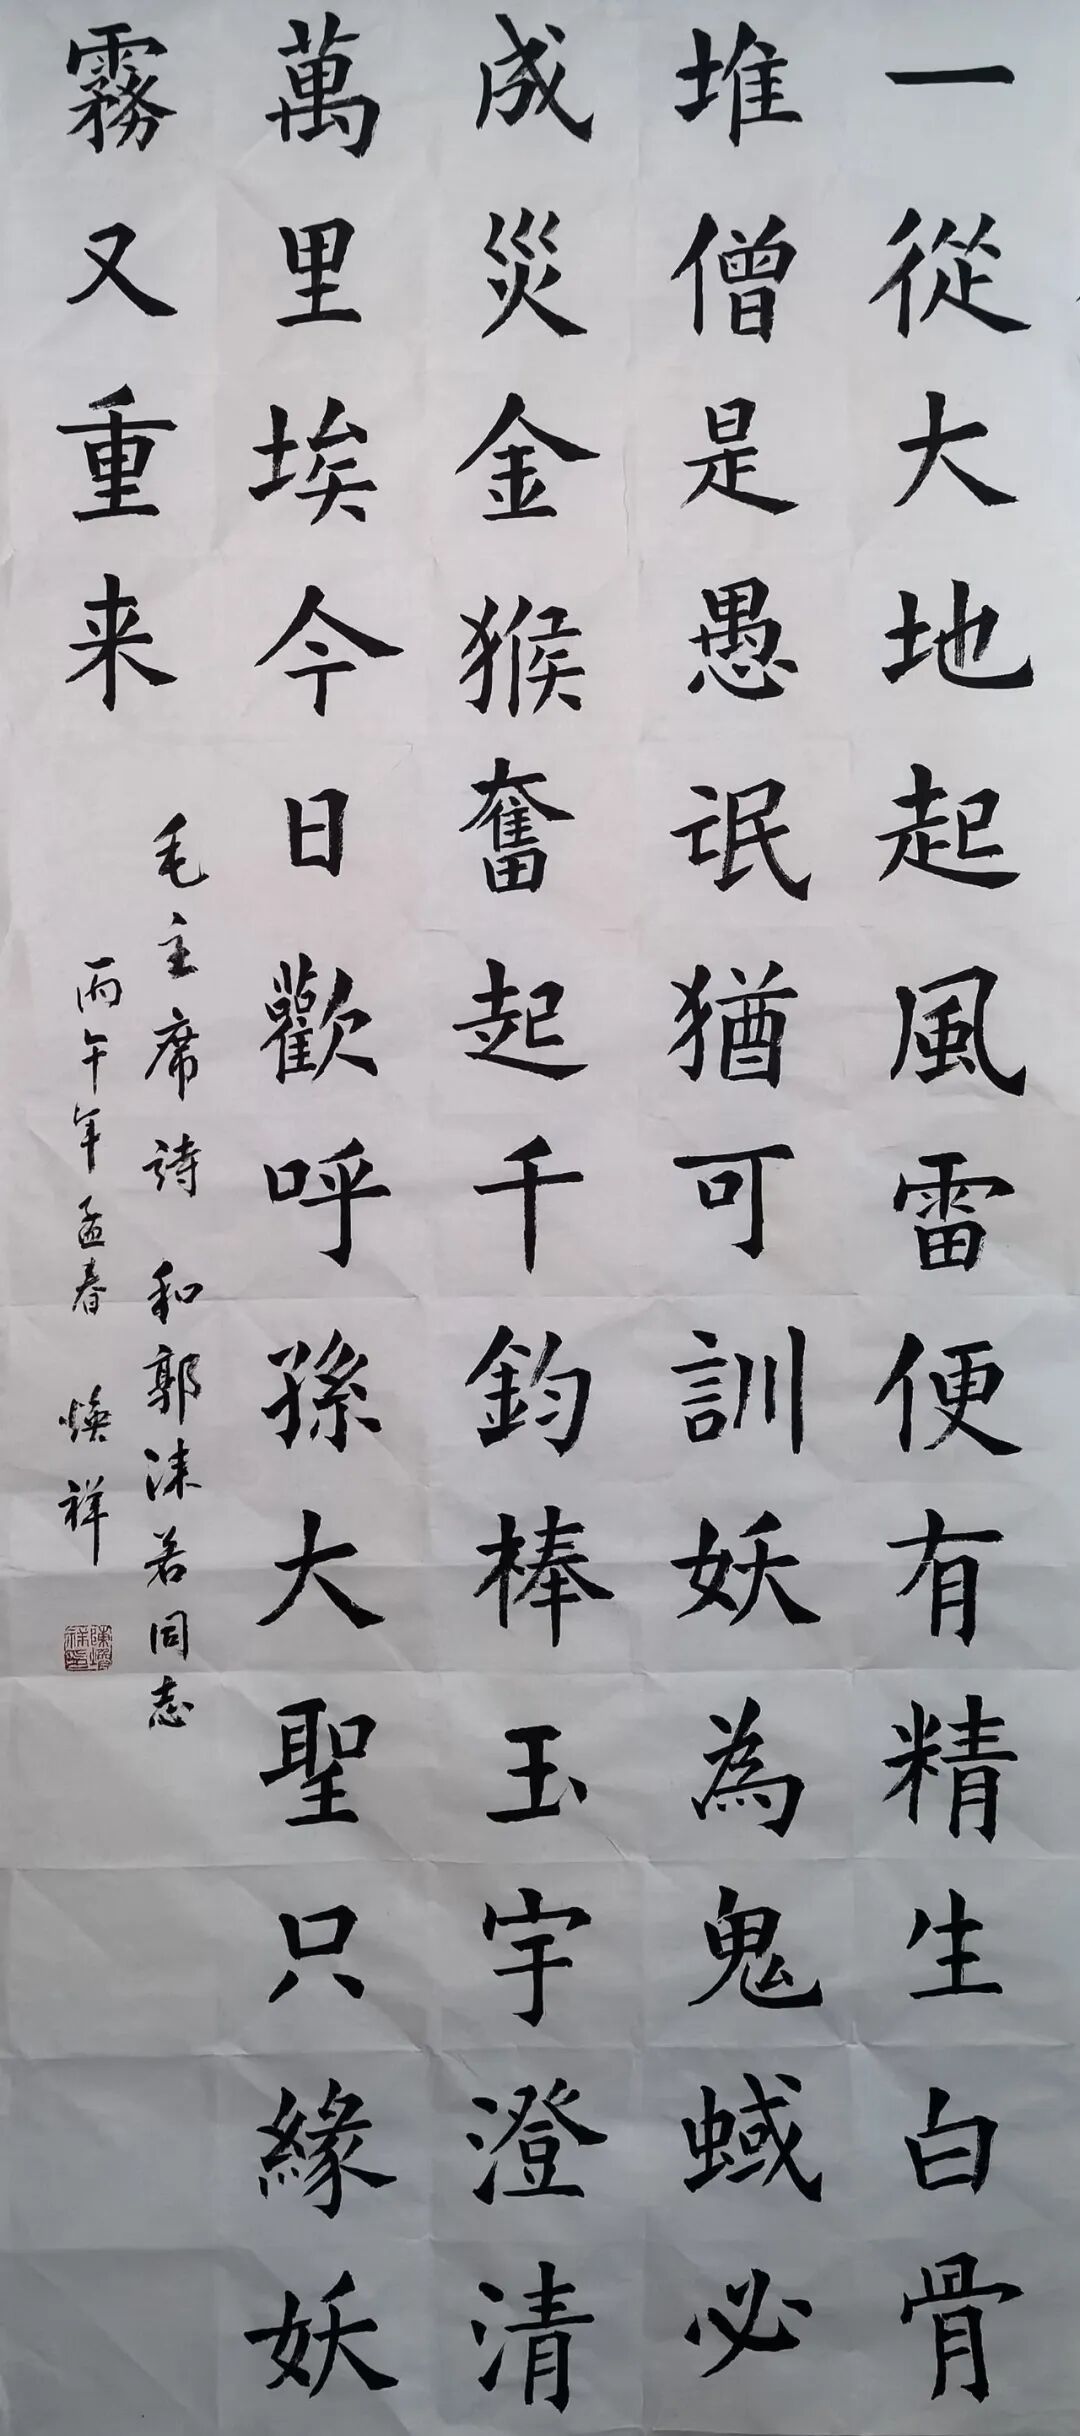 一從大地起風雷便有精生白骨
堆僧是愚氓猶可訓妖為鬼蜮必
成災金猴奮起千鈞棒玉宇澄清
萬里埃今日歡呼孫大聖只緣妖
霧又重来
毛主席詩 和郭沫若同志
丙午年孟春 焕祥